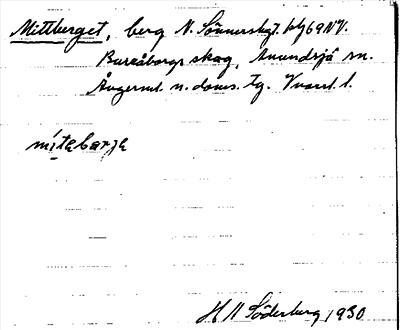 Mittberget, berg N. Sömmersbgt. bbg 69 NV.
Bureåborgs skog, Anundsjö sn.
Ångerml. n. doms. tg. Vnorrl. l.
mítebarja
H N Söderberg 1930